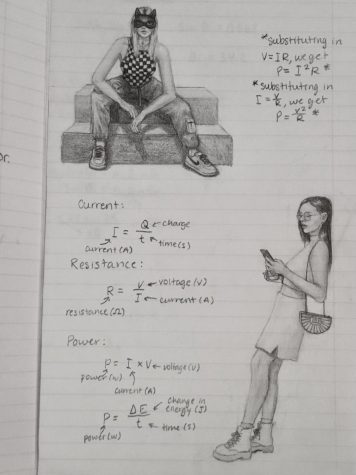 *substituting in
V=IR, we get
P= I²R *
*substituting in
I = V/R, we get
P= V²/R *
or.
Current:
I = Q/t
charge
current (A)
time (s)
Resistance:
R = V/I
voltage (V)
current (A)
resistance (Ω)
Power:
P = I × V
voltage (V)
power (W)
current (A)
P = ΔE/t
change in
energy (J)
time (s)
power (W)